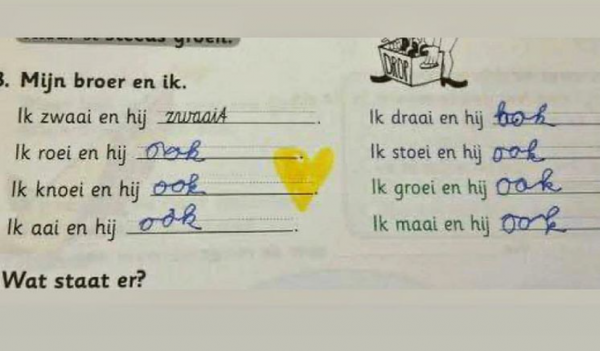 3. Mijn broer en ik.
Ik zwaai en hij zwaait.
Ik roei en hij ook.
Ik knoei en hij ook.
Ik aai en hij ook.
DROP
Ik draai en hij ook
Ik stoei en hij ook
Ik groei en hij ook
Ik maai en hij ook
Wat staat er?